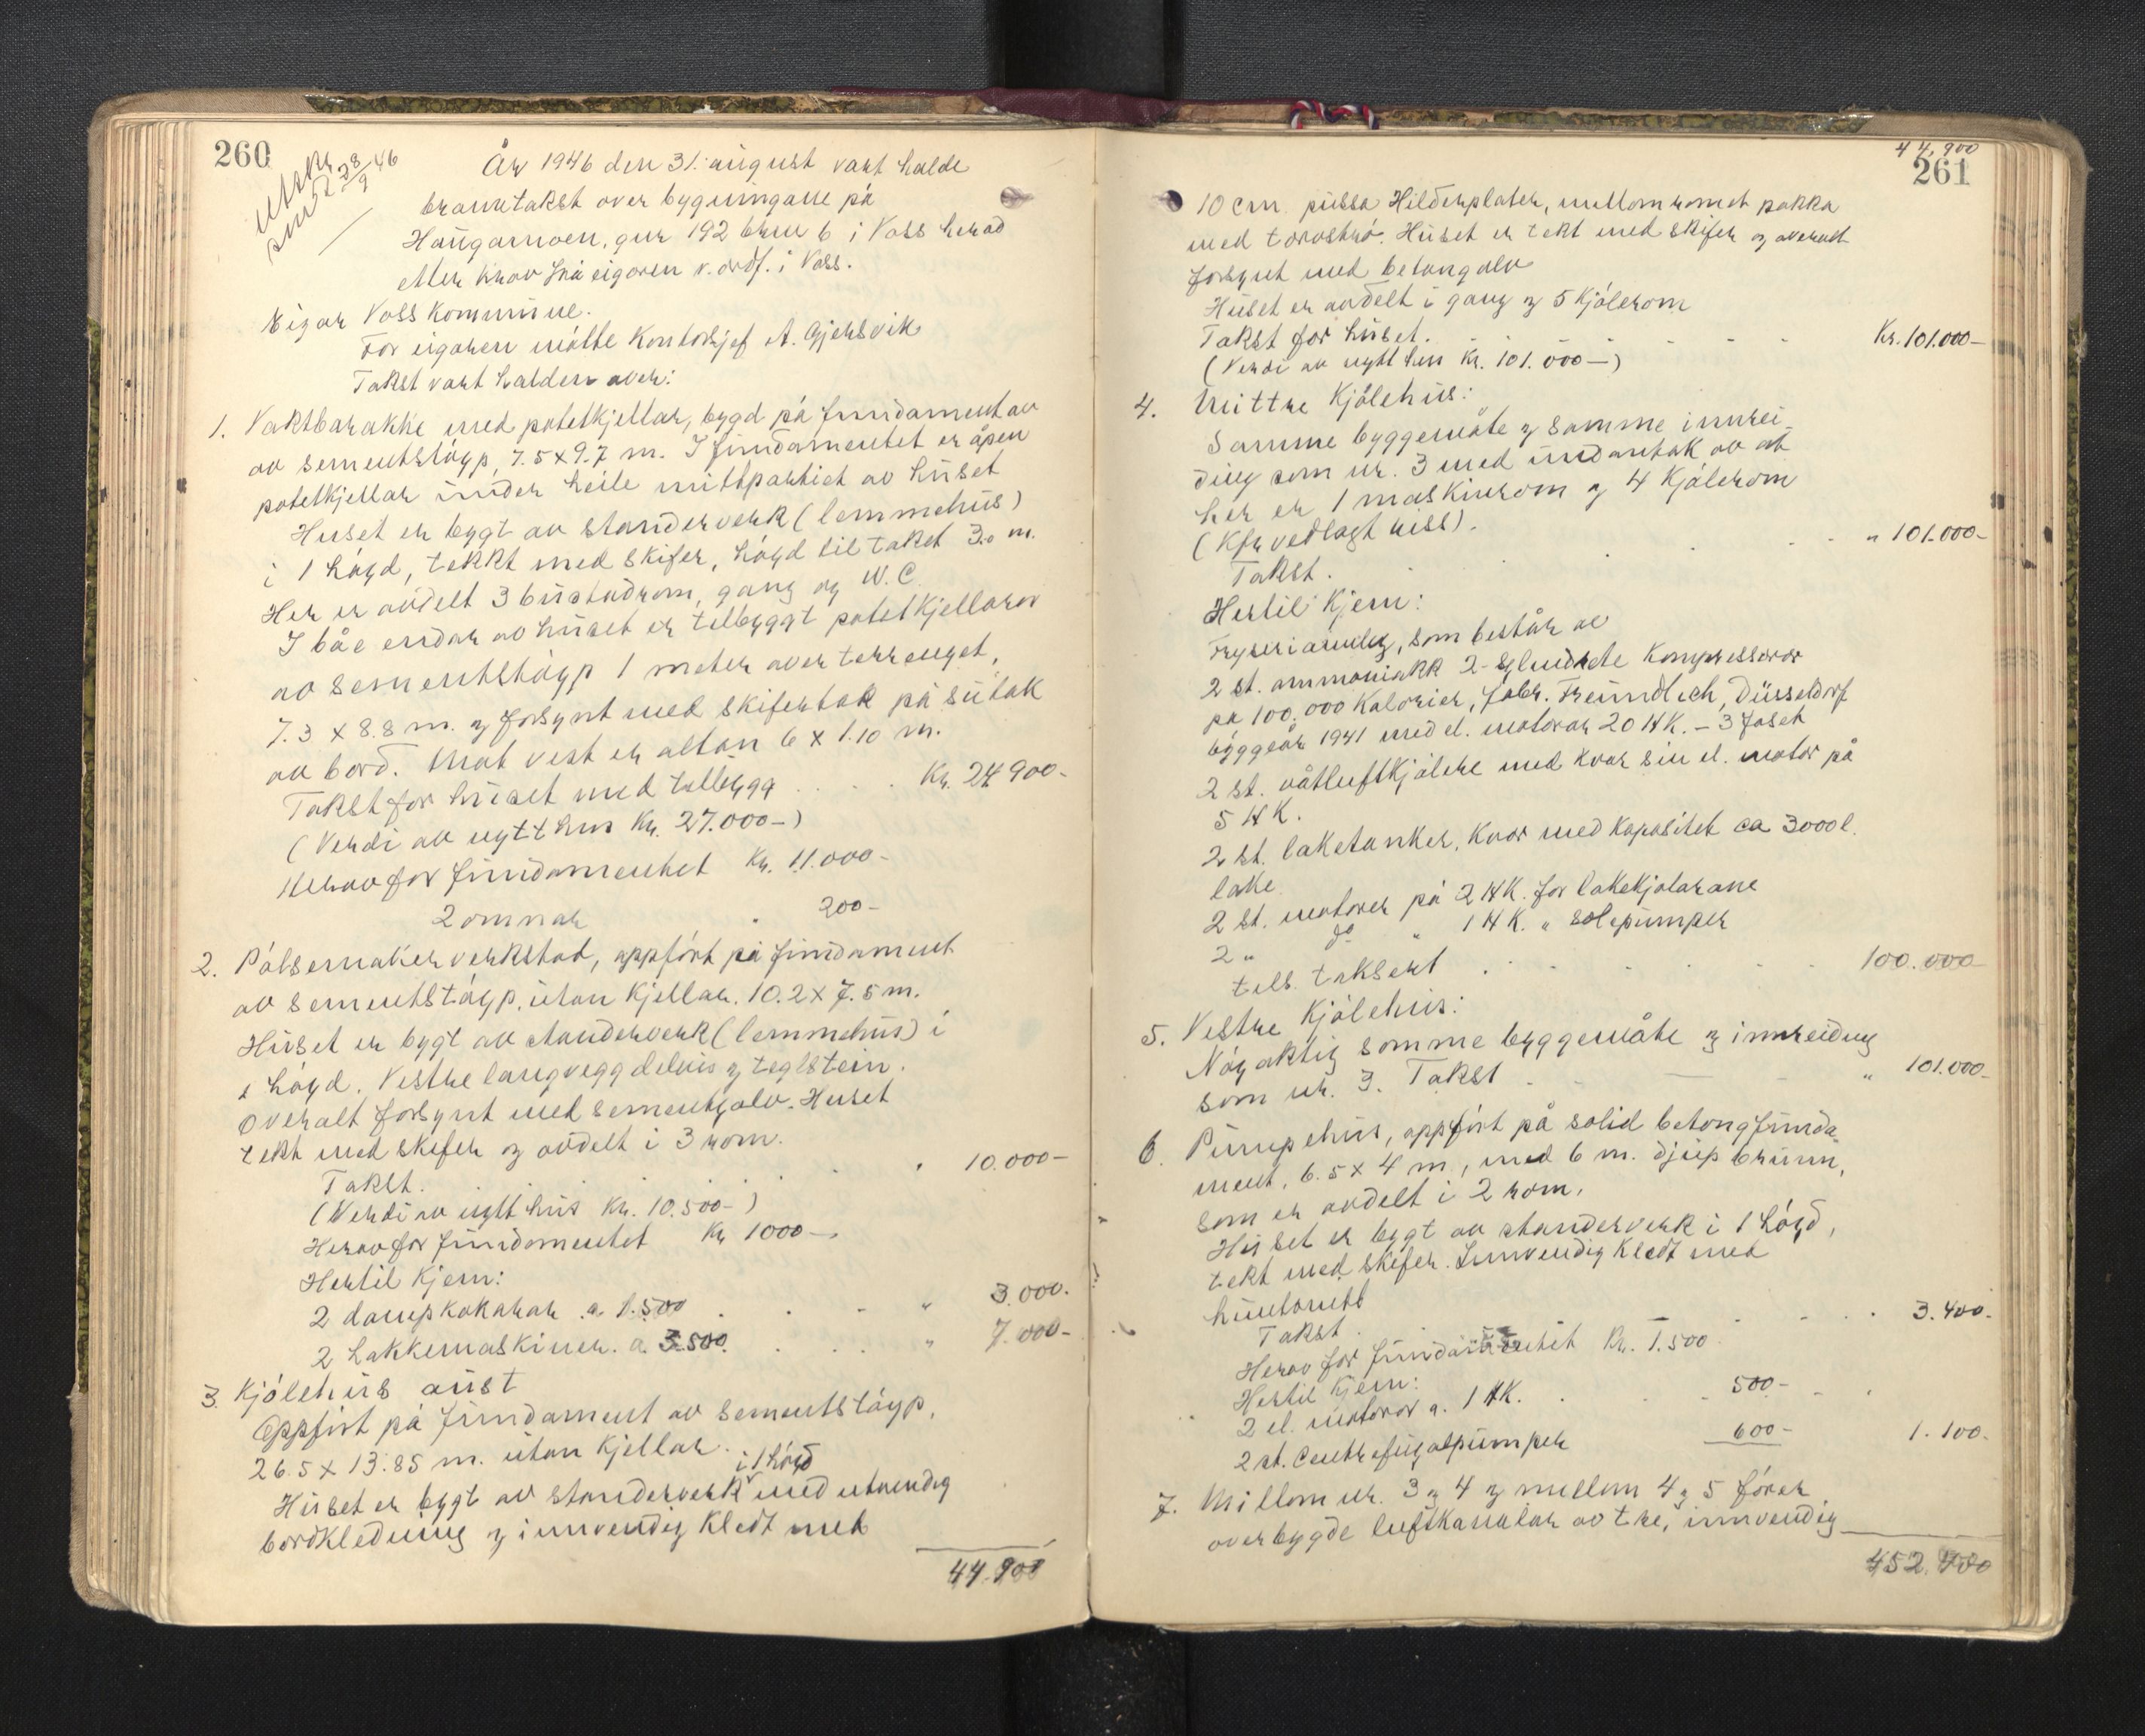 260
Utskr
send 28/9 46
År 1946 den 31. august vart halde
branntakst over bygningane på
Haugamoen, gnr 192 bnr 6 i Voss herad
etter krav frå eigaren v. ordf. i Voss.
Eigar Voss kommune.
For eigaren møtte kontorsjef A. Gjersvik
Takst vart halden over:
1. Vaktbarakke med potetkjellar, bygd på fundament av
av sementstøyp, 7.5 x 9.7 m. I fundamentet er åpen
potetkjellar under heile mittpartiet av huset
Huset er bygt av standerverk (lemmehus)
i 1 høgd, tekkt med skifer, høgd til taket 3.0 m.
Her er avdelt 3 bustadrom, gang og W.C.
I båe endar av huset er tilbyggt potetkjellarar
av sementstøyp 1 meter over terrenget,
7.3 x 8.8 m. og forsynt med skifertak på sutak
av bord. Mot vest er altan 6 x 1.10 m.
Takst for huset med tilbygg . . . . Kr. 24 900-
(Verdi av nytt hus Kr. 27.000-)
Herav for fundamentet Kr. 11.000-
2 omnar " 200-
2. Pølsemakerverkstad, oppført på fundament
av sementstøyp, utan kjellar. 10.2 x 7.5 m.
Huset er bygt av standerverk (lemmehus) i
1 høgd. Vestre langvegg delvis og teglstein.
Overalt forsynt med sementgolv. Huset
tekt med skifer og avdelt i 3 rom.
Takst. . . . . . . 10.000-
(Verdi av nytt hus Kr. 10.500-)
Herav for fundamentet Kr 1000-
Hertil kjem:
2 dampkokarar a. 1.500 . . . " 3.000.
2 hakkemaskiner. a. 3.500. . . . " 7.000-
3. Kjølehus aust
Oppført på fundament av sementstøyp,
26.5 x 13.85 m. utan kjellar.
i 1 høgd
Huset er bygt av standerverk med utvendig
bordkledning og innvendig kledt med
44.900
44.900
261
10 cm. pussa Hilderplater, mellomromet pakka
med torvstrø. Huset er tekt med skifer og overalt
forsynt med betongolv
Huset er avdelt i gang og 5 kjølerom
Takst for huset. . . . . . Kr. 101.000-
(Verdi av nytt hus Kr. 101.000-)
4. Mittre Kjølehus:
Samme byggemåte og samme innrei-
ding som nr. 3 med undantak av at
her er 1 maskinrom og 4 kjølerom
(Kfr vedlagt riss).
Takst. . . . . " 101.000-
Hertil kjem:
Fryserianlegg, som består av
2 st. ammoniakk 2-sylindrete kompressorar
på 100.000 kalorier, fabr. Freundlich, Düsseldorf
byggeår 1941 med el. motorar 20 HK. - 3 faset
2 st. våtluftkjølere med kvar sin el. motor på
5 HK.
2 st. laketanker, kvar med kapasitet ca 3000 l.
lake.
2 st. motorer på 2 HK. for lakekjølarane
2 " do " 1 HK. " solepumper
tils. taksert . . . . . 100.000
5. Vestre Kjølehus:
Nøyaktig samme byggemåte og innreiding
som nr. 3. Takst . . " 101.000-
6. Pumpehus, oppført på solid betongfunda-
ment, 6.5 x 4 m., med 6 m. djup brunn,
som er avdelt i 2 rom.
Huset er bygt av standerverk i 1 høgd,
tekt med skifer. Innvendig kledt med
huntonitt
Takst . . . . . 3.400.
Herav for fundamentet Kr. 1.500
Hertil kjem:
2 el. motorar a. 1 HK. . . 500-
2 st. Centrefugalpumper 600- 1.100.
7. Millom nr. 3 og 4 og mellom 4 og 5 fører
overbygde luftkanalar av tre, innvendig
452.400